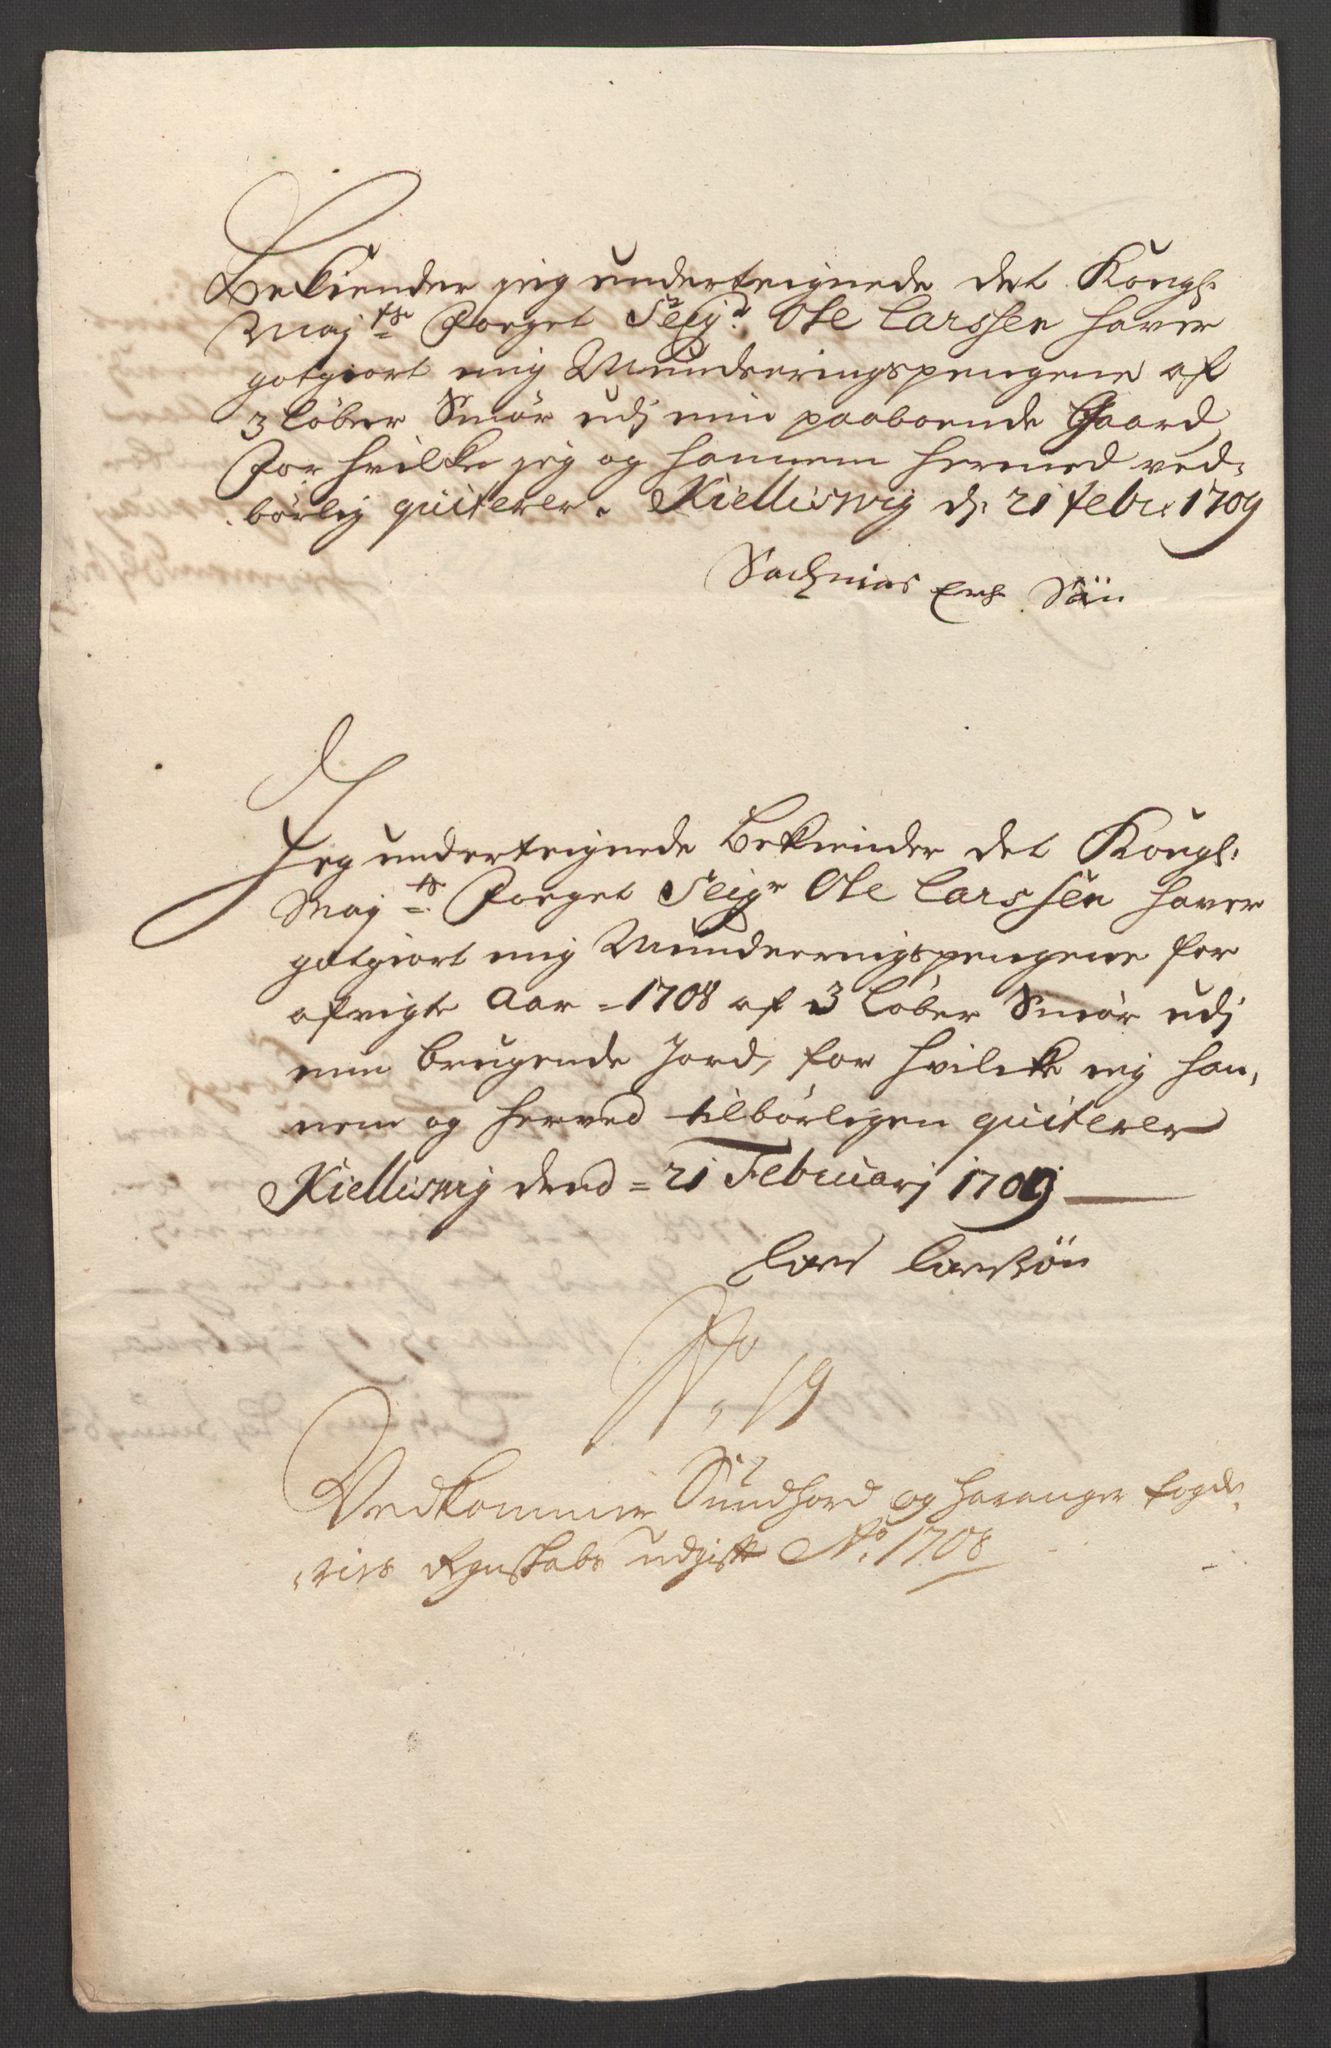 Bekiender jeg underteignede det Kongl.
Maj ts Foeget Seigr. Ole Larssen haver
gotgiort mig Munderingspengene af
3 Løber Smør udj min paaboende Gaard,
For hvilke jeg og hannem hermed ved-
børlig quiterer. Kiellisvig d. 21 febr. 1709
Sachnias Sön
Jeg underteignede bekiender det Kongl.
Maj ts. Foeget Seigr Ole Larssen haver
gotgiort mig Munderingspengene for
afvigte Aar - 1708 af 3 Løber Smør udj
min brugende Jord, for hvilcke jeg han,
nem og herved tilbørligen quiterer
Kiellisvig dend = 21 Februarj 1709
Lars Larssön
No. 19
Vedkommer Sundhord og Haranger fogde,
,ries Regnskabs udgift Ao. 1708